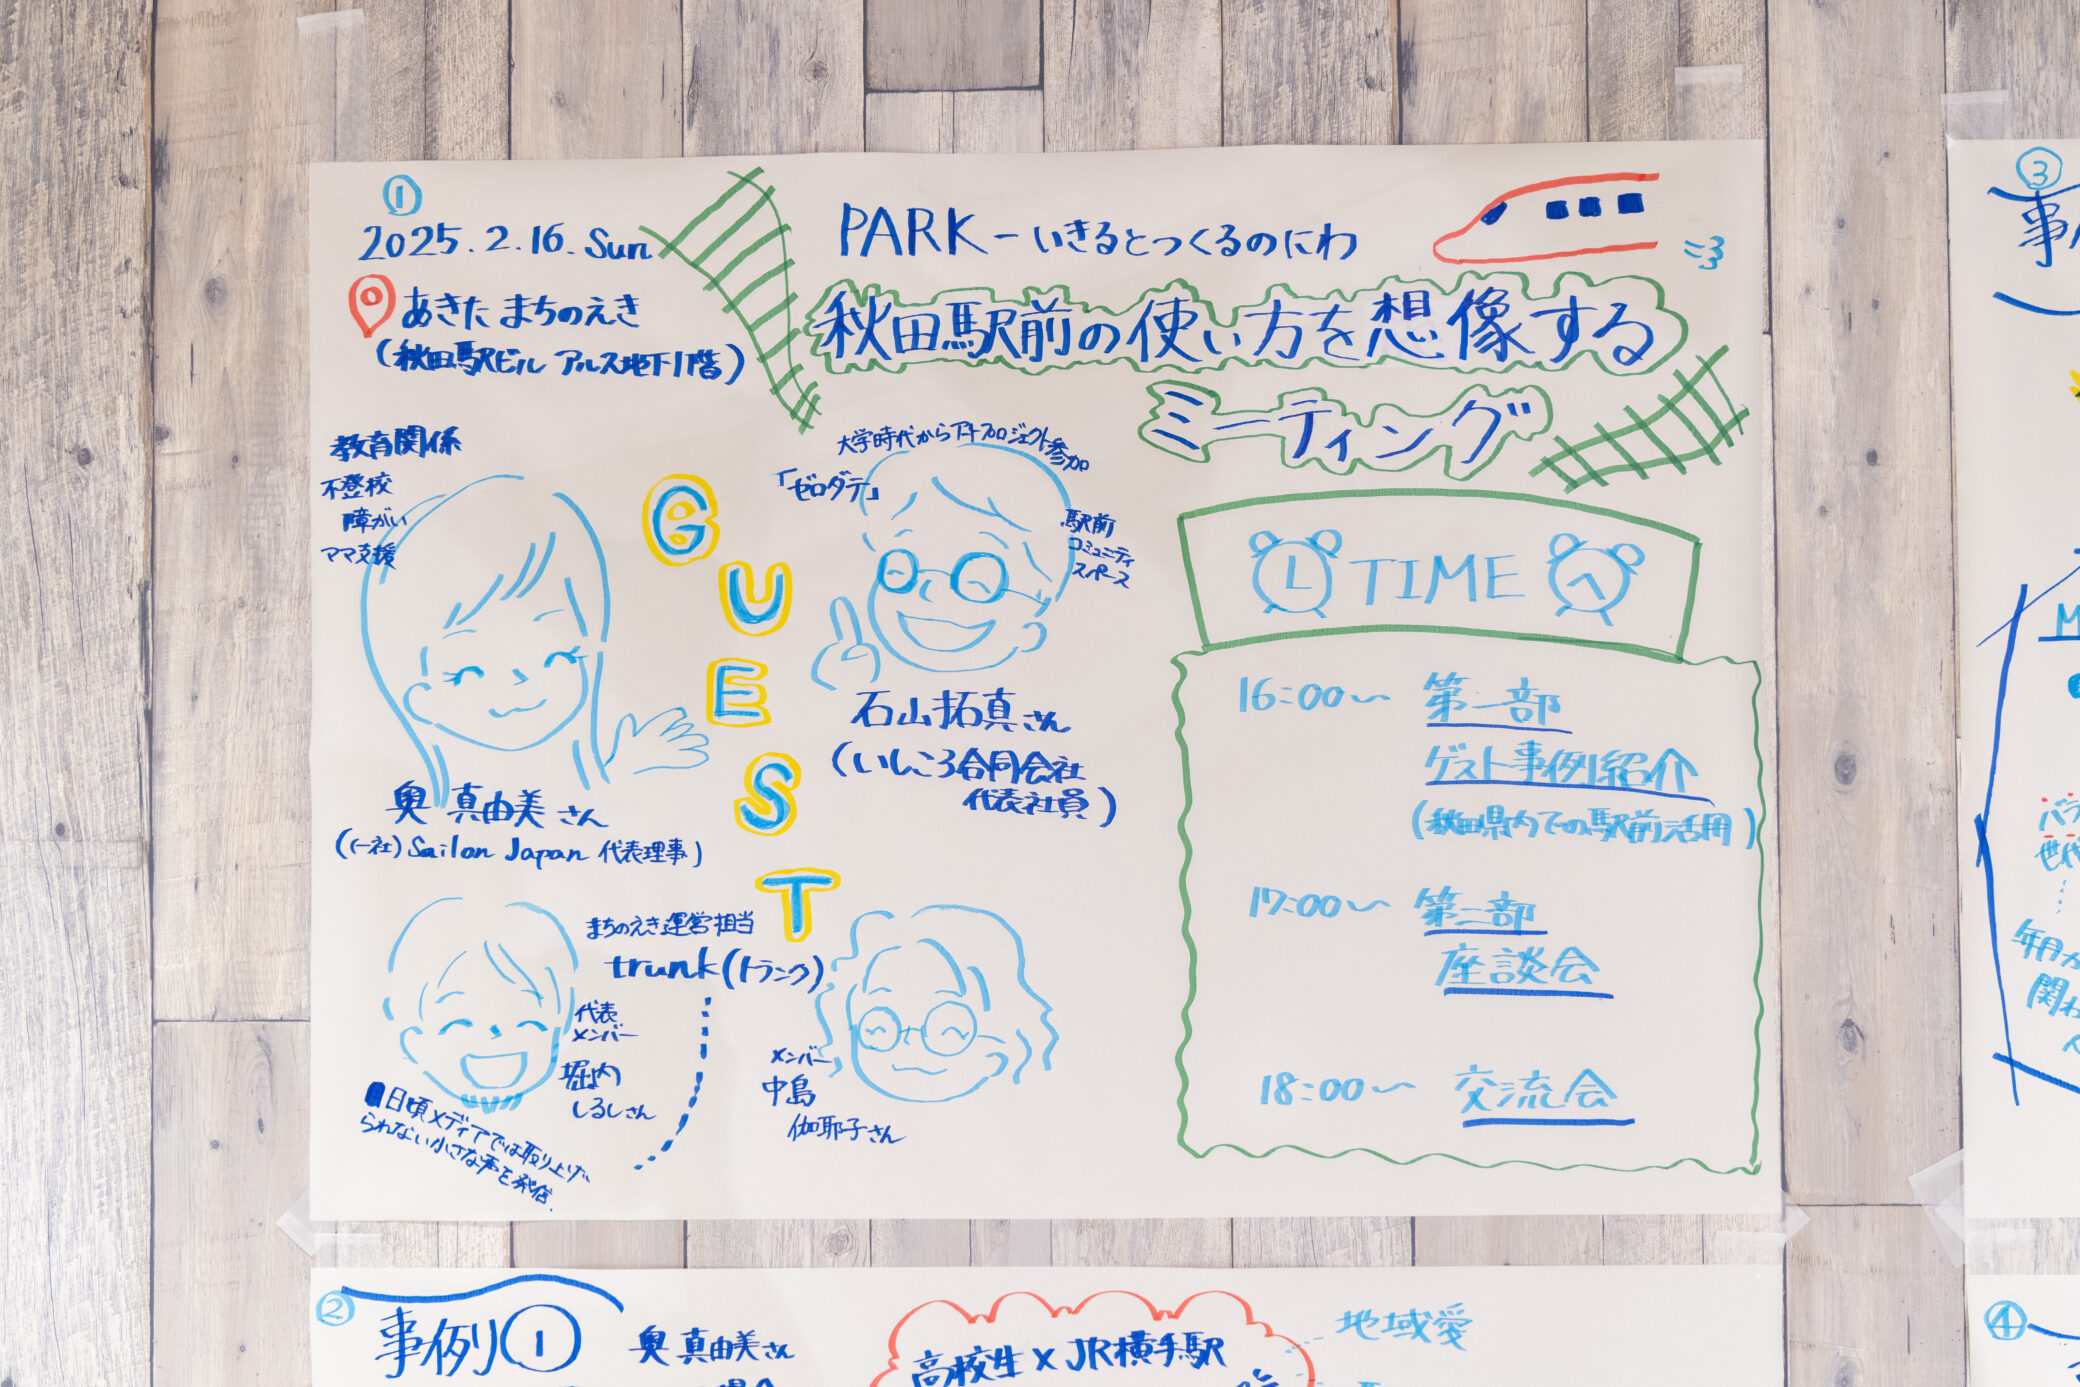 ①
2025.2.16.Sun
あきた まちのえき
(秋田駅ビル アルス地下1階)
PARK－いきるとつくるのにわ
秋田駅前の使い方を想像する
ミーティング
教育関係
不登校
障がい
ママ支援
奥 真由美さん
((一社)Sailon Japan 代表理事)
GUEST
大学時代からアートプロジェクト参加
「ゼロダテ」
駅前
コミュニティ
スペース
石山拓真さん
(いしころ合同会社
代表社員)
まちのえき運営担当
trunk(トランク)
代表
メンバー
堀内
しるしさん
日頃メディアでは取り上げ
られない小さな声を発信.
メンバー
中島
伽耶子さん
TIME
16:00〜 第一部
ゲスト事例紹介
(秋田県内での駅前活用)
17:00〜 第二部
座談会
18:00〜 交流会
②
事例①
奥 真由美さん
高校生×JR横手駅
地域愛
③
事
世代
年月
関わ
④